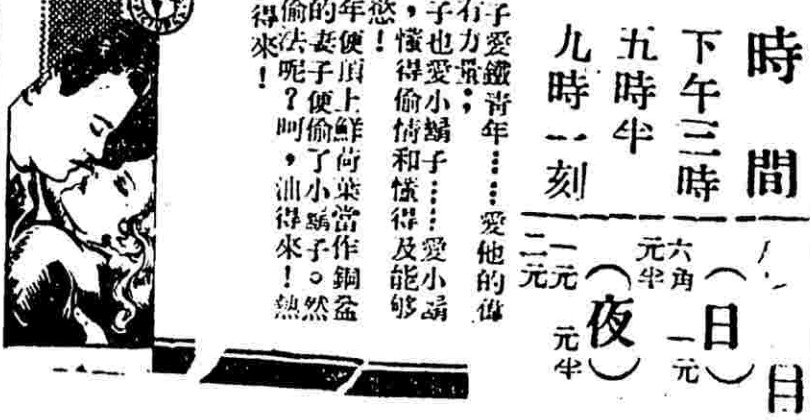 時間
下午三時
五時半
九時一刻
日
(日)
六角 一元
元半
(夜)
一元 元半
二元
子愛鐵青年……愛他的偉
有力量;
子也愛小鬍子……愛小鬍
,懂得偷情和懂得及能够
慾!
年便頂上鮮荷葉當作鋼盔
的妻子便偷了小鬍子。然
偷法呢?呵,油得來!熱
得來!